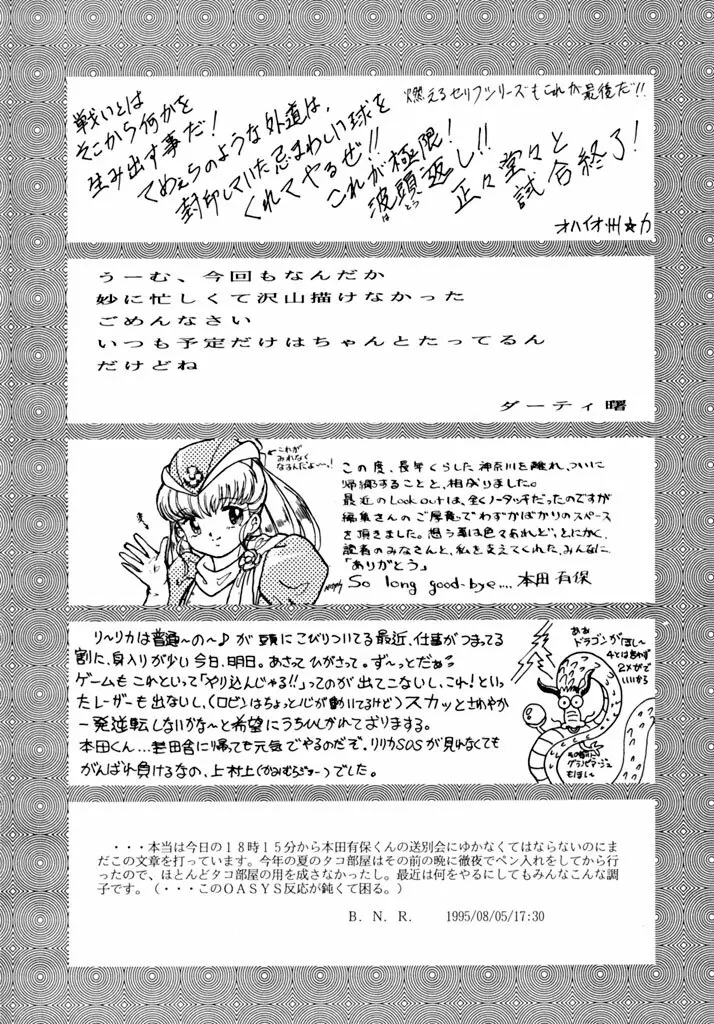 燃えるセリフシリーズもこれが最後だ!!
戦いとは
そこから何かを
生み出す事だ!
てめえらのような外道は、
封印していた忌まわしい球を
くれてやるぜ!!
これが極限!
波頭返し!!
はとう
正々堂々と
試合終了!
オハイオ州☆力
うーむ、今回もなんだか
妙に忙しくて沢山描けなかった
ごめんなさい
いつも予定だけはちゃんとたってるん
だけどね
ダーティ曙
←これが
みれなく
なるんだよ〜〜!
この度、長年くらした神奈川を離れ、ついに
帰郷することと、相成りました。
最近のLook outは、全くノータッチだったのですが
編集さんのご厚意でわずかばかりのスペース
を頂きました。想う事は色々あれど、とにかく、
読者のみなさんと、私を支えてくれた、みんなに
「ありがとう」
So long good-bye.... 本田 有保
リ〜リカは普通〜の〜♪が頭にこびりついてる最近、仕事がつまってる
割に、身入りが少い今日、明日。あさってひがさって。ず〜っとだぁ
ゲームもこれといって「やり込んじゃる!!」ってのが出てこないし、これ!といっ
たレーザーも出ないし、(ロビンはちょっと心が動いてるけど)スカッとさわやか
一発逆転しないかな〜と希望にうちひしがれております。
本田くん...田舎に帰っても元気でやるのだぞ、リリカSOSが見れなくても
がんばれ負けるなの、上村上(かみむらじょー)でした。
ああ
ドラゴンがほし〜
4とは言わず
2メガで
いいから
グラパマージュ
もほし〜
・・・本当は今日の18時15分から本田有保くんの送別会にゆかなくてはならないのにま
だこの文章を打っています。今年の夏のタコ部屋はその前の晩に徹夜でペン入れをしてから行
ったので、ほとんどタコ部屋の用を成さなかったし。最近は何をやるにしてもみんなこんな調
子です。(・・・このOASYS反応が鈍くて困る。)
B. N. R. 1995/08/05/17:30